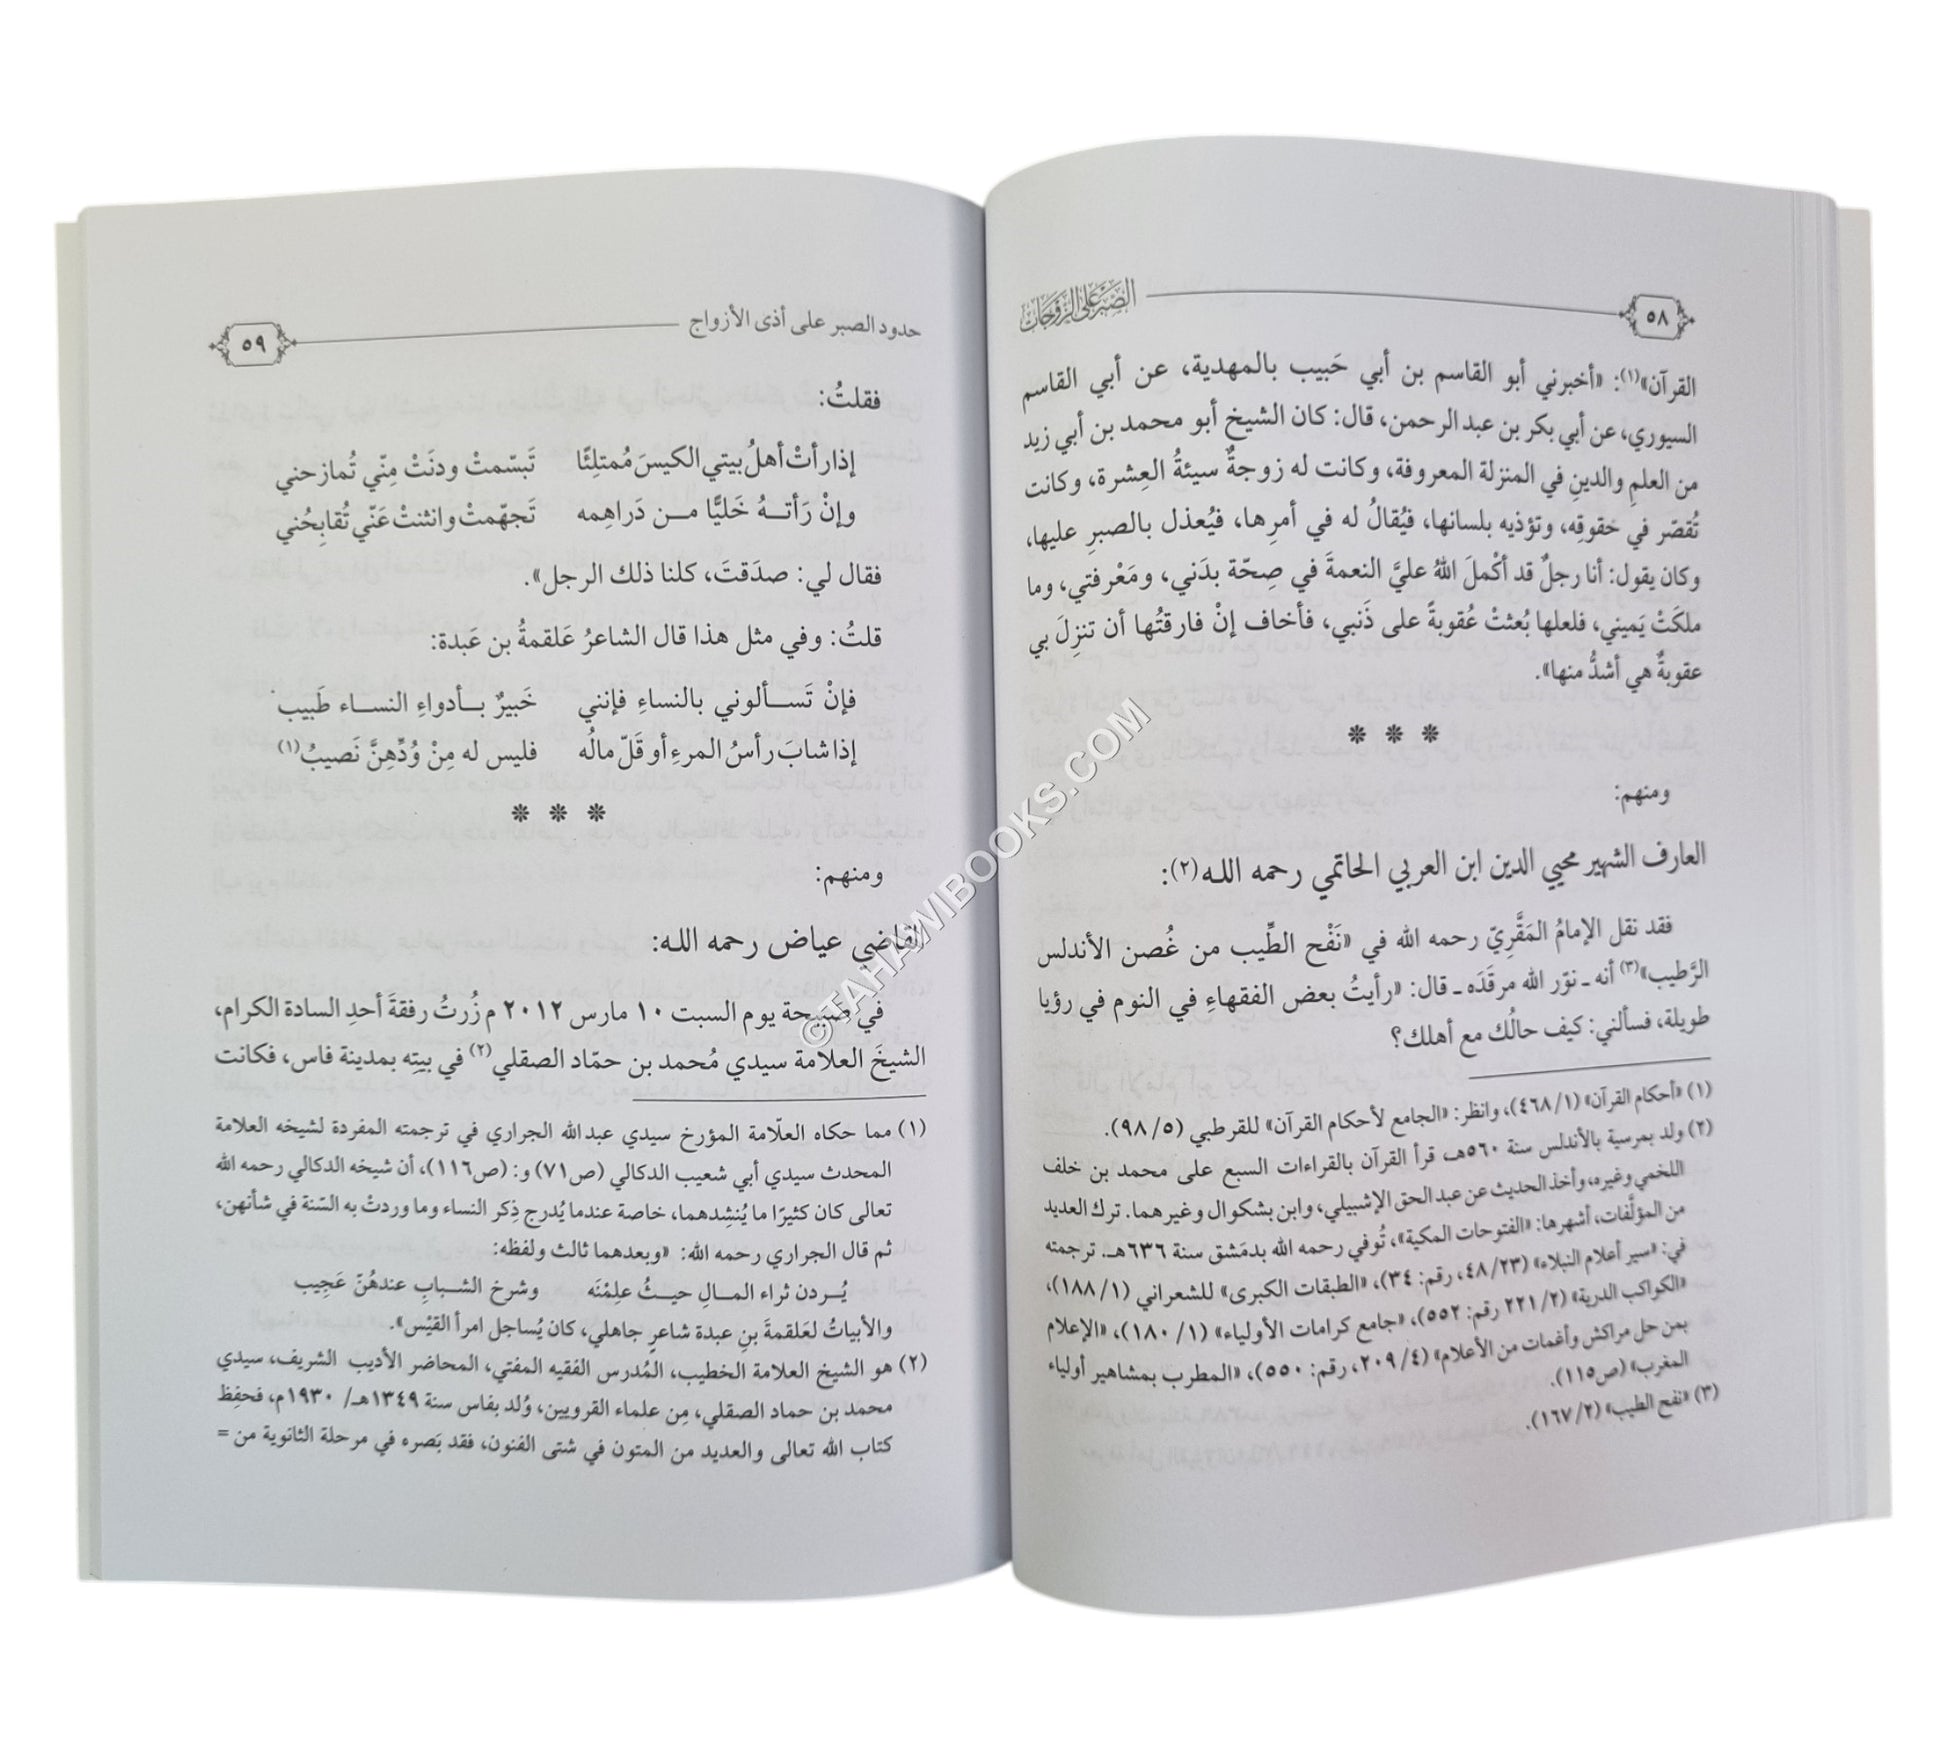 ٥٨
الصبر على الزوجات
القرآن»(١): «أخبرني أبو القاسم بن أبي حَبيب بالمهدية، عن أبي القاسم
السيوري، عن أبي بكر بن عبد الرحمن، قال: كان الشيخ أبو محمد بن أبي زيد
من العلمِ والدينِ في المنزلة المعروفة، وكانت له زوجةٌ سيئةُ العِشرة، وكانت
تُقصّر في حَقوقِه، وتؤذيه بلسانها، فيُقالُ له في أمرِها، فيُعذل بالصبرِ عليها،
وكان يقول: أنا رجلٌ قد أكْملَ اللهُ عليَّ النعمةَ في صِحّة بدَني، ومَعْرفتي، وما
ملكَتْ يَميني، فلعلها بُعثتْ عُقوبةً على ذَنبي، فأخاف إنْ فارقتُها أن تنزِلَ بي
عقوبةٌ هي أشدُّ منها».
* * *
ومنهم:
العارف الشهير محيي الدين ابن العربي الحاتمي رحمه الله(٢):
فقد نقل الإمامُ المَقَّرِيّ رحمه الله في «نَفْح الطِّيب من غُصن الأندلس
الرَّطيب»(٣) أنه ـ نوّر الله مرقَدَه ـ قال: «رأيتُ بعض الفقهاءِ في النوم في رؤيا
طويلة، فسألني: كيف حالُك مع أهلك؟
(١) «أحكام القرآن» (٤٦٨/١)، وانظر: «الجامع لأحكام القرآن» للقرطبي (٩٨/٥).
(٢) ولد بمرسية بالأندلس سنة ٥٦٠هـ، قرأ القرآن بالقراءات السبع على محمد بن خلف
اللخمي وغيره، وأخذ الحديث عن عبد الحق الإشبيلي، وابن بشكوال وغيرهما. ترك العديد
من المؤلَّفات، أشهرها: «الفتوحات المكية»، تُوفي رحمه الله بدمَشق سنة ٦٣٦هـ. ترجمته
في: «سير أعلام النبلاء» (٤٨/٢٣، رقم: ٣٤)، «الطبقات الكبرى» للشعراني (١٨٨/١)،
«الكواكب الدرية» (٢٢١/٢ رقم: ٥٥٢)، «جامع كرامات الأولياء» (١٨٠/١)، «الإعلام
بمن حل مراكش وأغمات من الأعلام» (٢٠٩/٤، رقم: ٥٥٠)، «المطرب بمشاهير أولياء
المغرب» (ص١١٥).
(٣) «نفح الطيب» (١٦٧/٢).
حدود الصبر على أذى الأزواج
٥٩
فقلتُ:
إذا رأتْ أهلُ بيتي الكيسَ مُمتلِئًا تَبسّمتْ ودنَتْ مِنّي تُمازحني
وإنْ رَأتهُ خَليًّا من دَراهِمه تَجهّمتْ وانثنتْ عَنّي تُقابِحُني
فقال لي: صدَقتَ، كلنا ذلك الرجل».
قلتُ: وفي مثل هذا قال الشاعرُ عَلقمةُ بن عَبدة:
فإنْ تَسألوني بالنساءِ فإنني خَبيرٌ بأدواءِ النساء طَبيب
إذا شابَ رأسُ المرءِ أو قَلّ مالُه فليس له مِنْ وُدِّهِنَّ نَصيبُ(١)
* * *
ومنهم:
القاضي عياض رحمه الله:
في صَبيحة يوم السبت ١٠ مارس ٢٠١٢ م زُرتُ رفقةَ أحدِ السادة الكرام،
الشيخَ العلامة سيدي مُحمد بن حمّاد الصقلي(٢) في بيتِه بمدينة فاس، فكانت
(١) مما حكاه العلّامة المؤرخ سيدي عبد الله الجراري في ترجمته المفردة لشيخه العلامة
المحدث سيدي أبي شعيب الدكالي (ص٧١) و: (ص١١٦)، أن شيخه الدكالي رحمه الله
تعالى كان كثيرًا ما يُنشِدهما، خاصة عندما يُدرج ذِكر النساء وما وردتْ به السّنة في شأنهن،
ثم قال الجراري رحمه الله: «وبعدهما ثالث ولفظه:
يُردن ثراء المالِ حيثُ علِمْنَه وشرخ الشبابِ عندهُنّ عَجِيب
والأبياتُ لعَلقمةَ بنِ عبدة شاعرٍ جاهلي، كان يُساجل امرأ القيْس».
(٢) هو الشيخ العلامة الخطيب، المُدرس الفقيه المفتي، المحاضر الأديب الشريف، سيدي
محمد بن حماد الصقلي، مِن علماء القرويين، وُلد بفاس سنة ١٣٤٩هـ/ ١٩٣٠م، فحفِظ
كتاب الله تعالى والعديد من المتون في شتى الفنون، فقد بَصره في مرحلة الثانوية من =
©TAHAWIBOOKS.COM